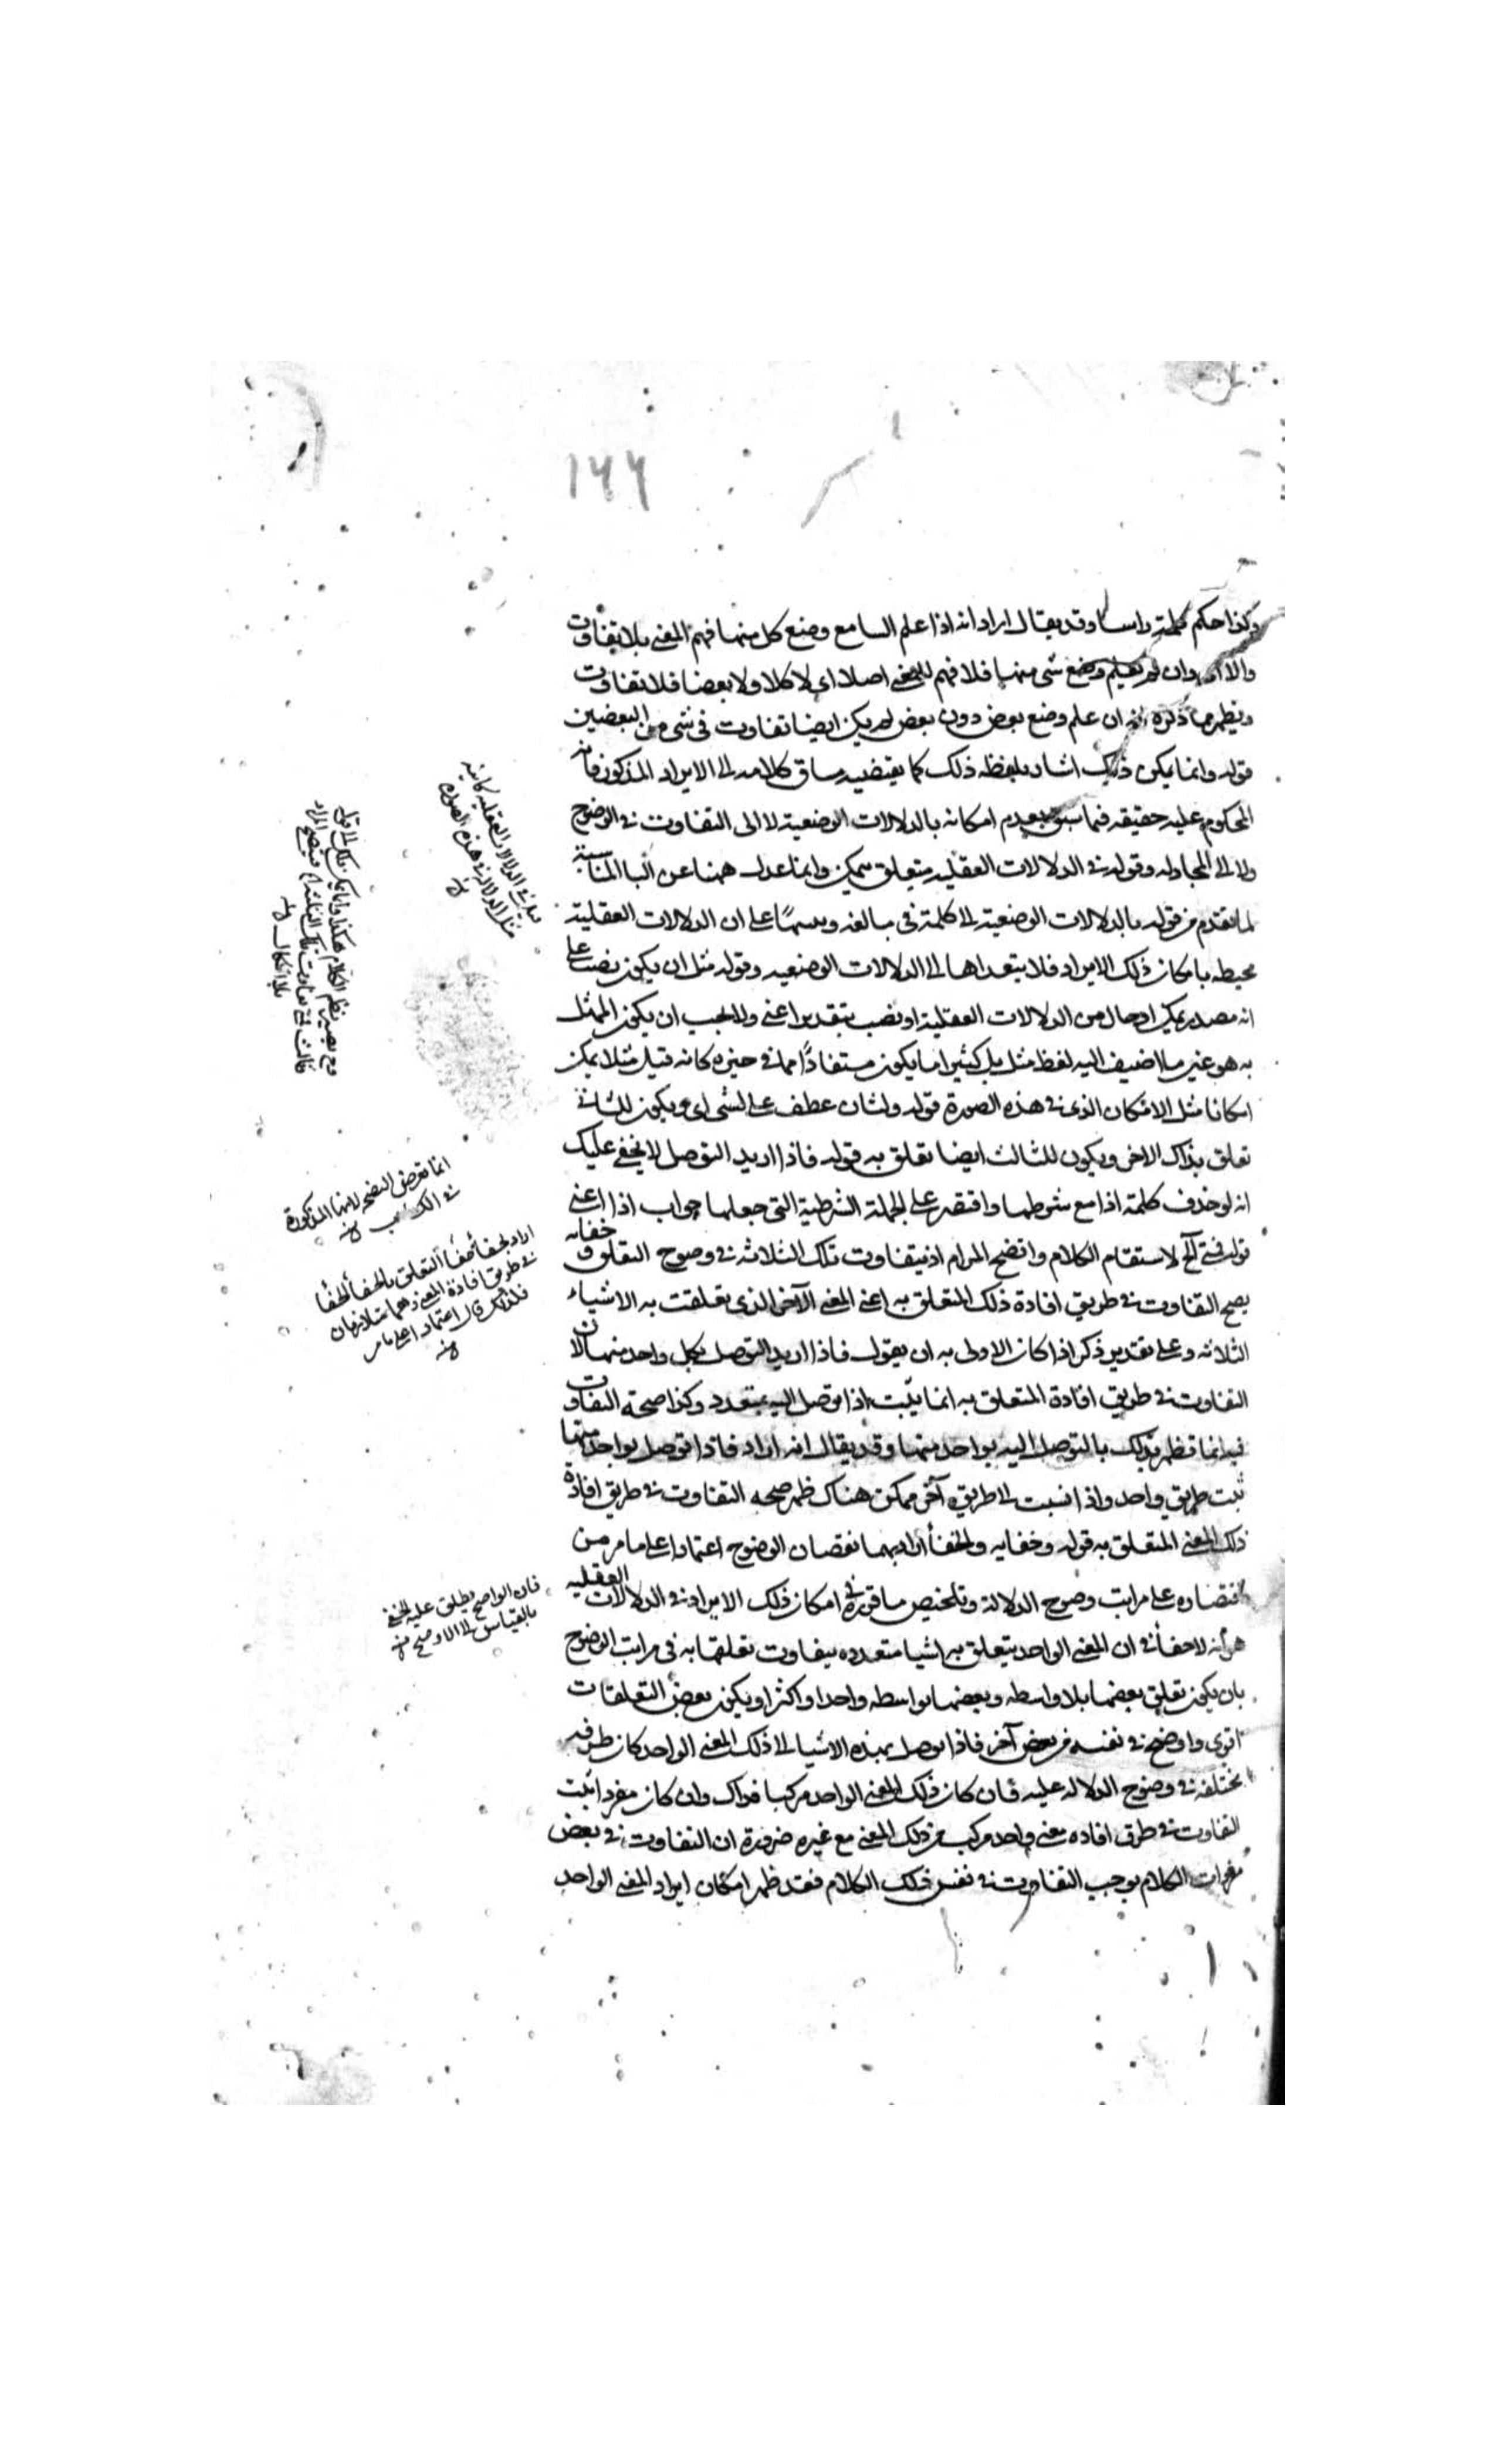 ١٦٦
وكذا حكم كلمة راسا وقد يقال اراد انه اذا علم السامع وضع كل منها فهم المعنى بلا تفاوت
والا اي وان لم يعلم وضع شى منها فلا فهم للمعنى اصلا اى لا كلا ولا بعضا فلا تفاوت
ويظهر مما ذكره انه ان علم وضع بعض دون بعض لم يكن ايضا تفاوت فى شى من البعضين
قوله وانما يمكن ذلك اشار بلفظه ذلك كما يقتضيه مساق كلامه الى الايراد المذكور فانه
المحكوم عليه حقيقه فيما سبق بعدم امكانه بالدلالات الوضعية لا الى التفاوت فى الوضوح
ولا الى المجادله وقوله فى الدلالات العقليه متعلق بيمكن وانما عدل ههنا عن البا المناسبة
لما تقدم من قوله بالدلالات الوضعية الى كلمة فى مبالغه وتنبيها على ان الدلالات العقلية
محيطه بامكان ذلك الايراد فلا يتعداها الى الدلالات الوضعيه وقوله مثل ان يكون نصب على
انه مصدر يمكن او حال من الدلالات العقلية او نصب بتقدير اعنى ولا يجب ان يكون الممثل
به هو عين ما اضيف اليه لفظ مثل بل كثيرا ما يكون مستفادًا مما فى حيزه كانه قيل مثلا يمكن
امكانا مثل الامكان الذى فى هذه الصورة قوله ولثان عطف على لشى اى ويكون للثانى
تعلق بذاك الاخر ويكون للثالث ايضا تعلق به قوله فاذا اريد التوصل لا يخفى عليك
انه لو حذف كلمة اذا مع شرطها واقتصر على الجملة الشرطية التى جعلها جواب اذا اعنى
قوله فمتى الخ لاستقام الكلام واتضح المرام اذ بتفاوت تلك الثلاثة فى وضوح التعلق وخفائه
يصح التفاوت فى طريق افادة ذلك المتعلق به اعنى المعنى الآخر الذى تعلقت به الاشياء
الثلاثه وعلى تقدير ذكر اذا كان الاولى به ان يقول فاذا اريد التوصل بكل واحد منها لان
التفاوت فى طريق افادة المتعلق به انما يثبت اذا توصل اليه بمتعدد وكذا صحة التفاوت
فيه انما تظهر بذلك بالتوصل اليه بواحد منها وقد يقال انه اراد فاذا توصل بواحد منها
ثبت طريق واحد واذا نسبت الى طريق آخر ممكن هناك ظهر صحه التفاوت فى طريق افادة
ذلك المعنى المتعلق به قوله وخفايه والخفأ اراد بهما نقصان الوضوح اعتمادا على ما مر من
اقتصاره على مراتب وضوح الدلالة وتلخيص ما قرره فى امكان ذلك الايراد فى الدلالات العقليه
هو انه لا خفأ فى ان المعنى الواحد يتعلق به اشيا متعدده يتفاوت تعلقها به فى مراتب الوضوح
بان يكون تعلق بعضها بلا واسطه وبعضها بواسطه واحد او اكثر او يكون بعض التعلقات
اقوى واوضح فى نفسه من بعض آخر فاذا توصل بهذه الاشيا الى ذلك المعنى الواحد كان طرقه
مختلفه فى وضوح الدلاله عليه فان كان ذلك المعنى الواحد مركبا فذاك وان كان مفردا ثبت
التفاوت فى طرق افاده معنى واحد مركب من ذلك المعنى مع غيره ضرورة ان التفاوت فى بعض
مفردات الكلام يوجب التفاوت فى نفس ذلك الكلام فقد ظهر امكان ايراد المعنى الواحد
فى الدلالات العقليه كاينه
مثل الدلاله فى هذه الصورة
انما تعرض لانها المذكورة
فى الكتاب منه
اراد بخفأ التعلق بالخفأ
فى طريق افادة المعنى وهما متلازمان
اعتمادا على ما مر
منه
فان الواضح يطلق عليه الخفى
بالقياس الى الاوضح منه